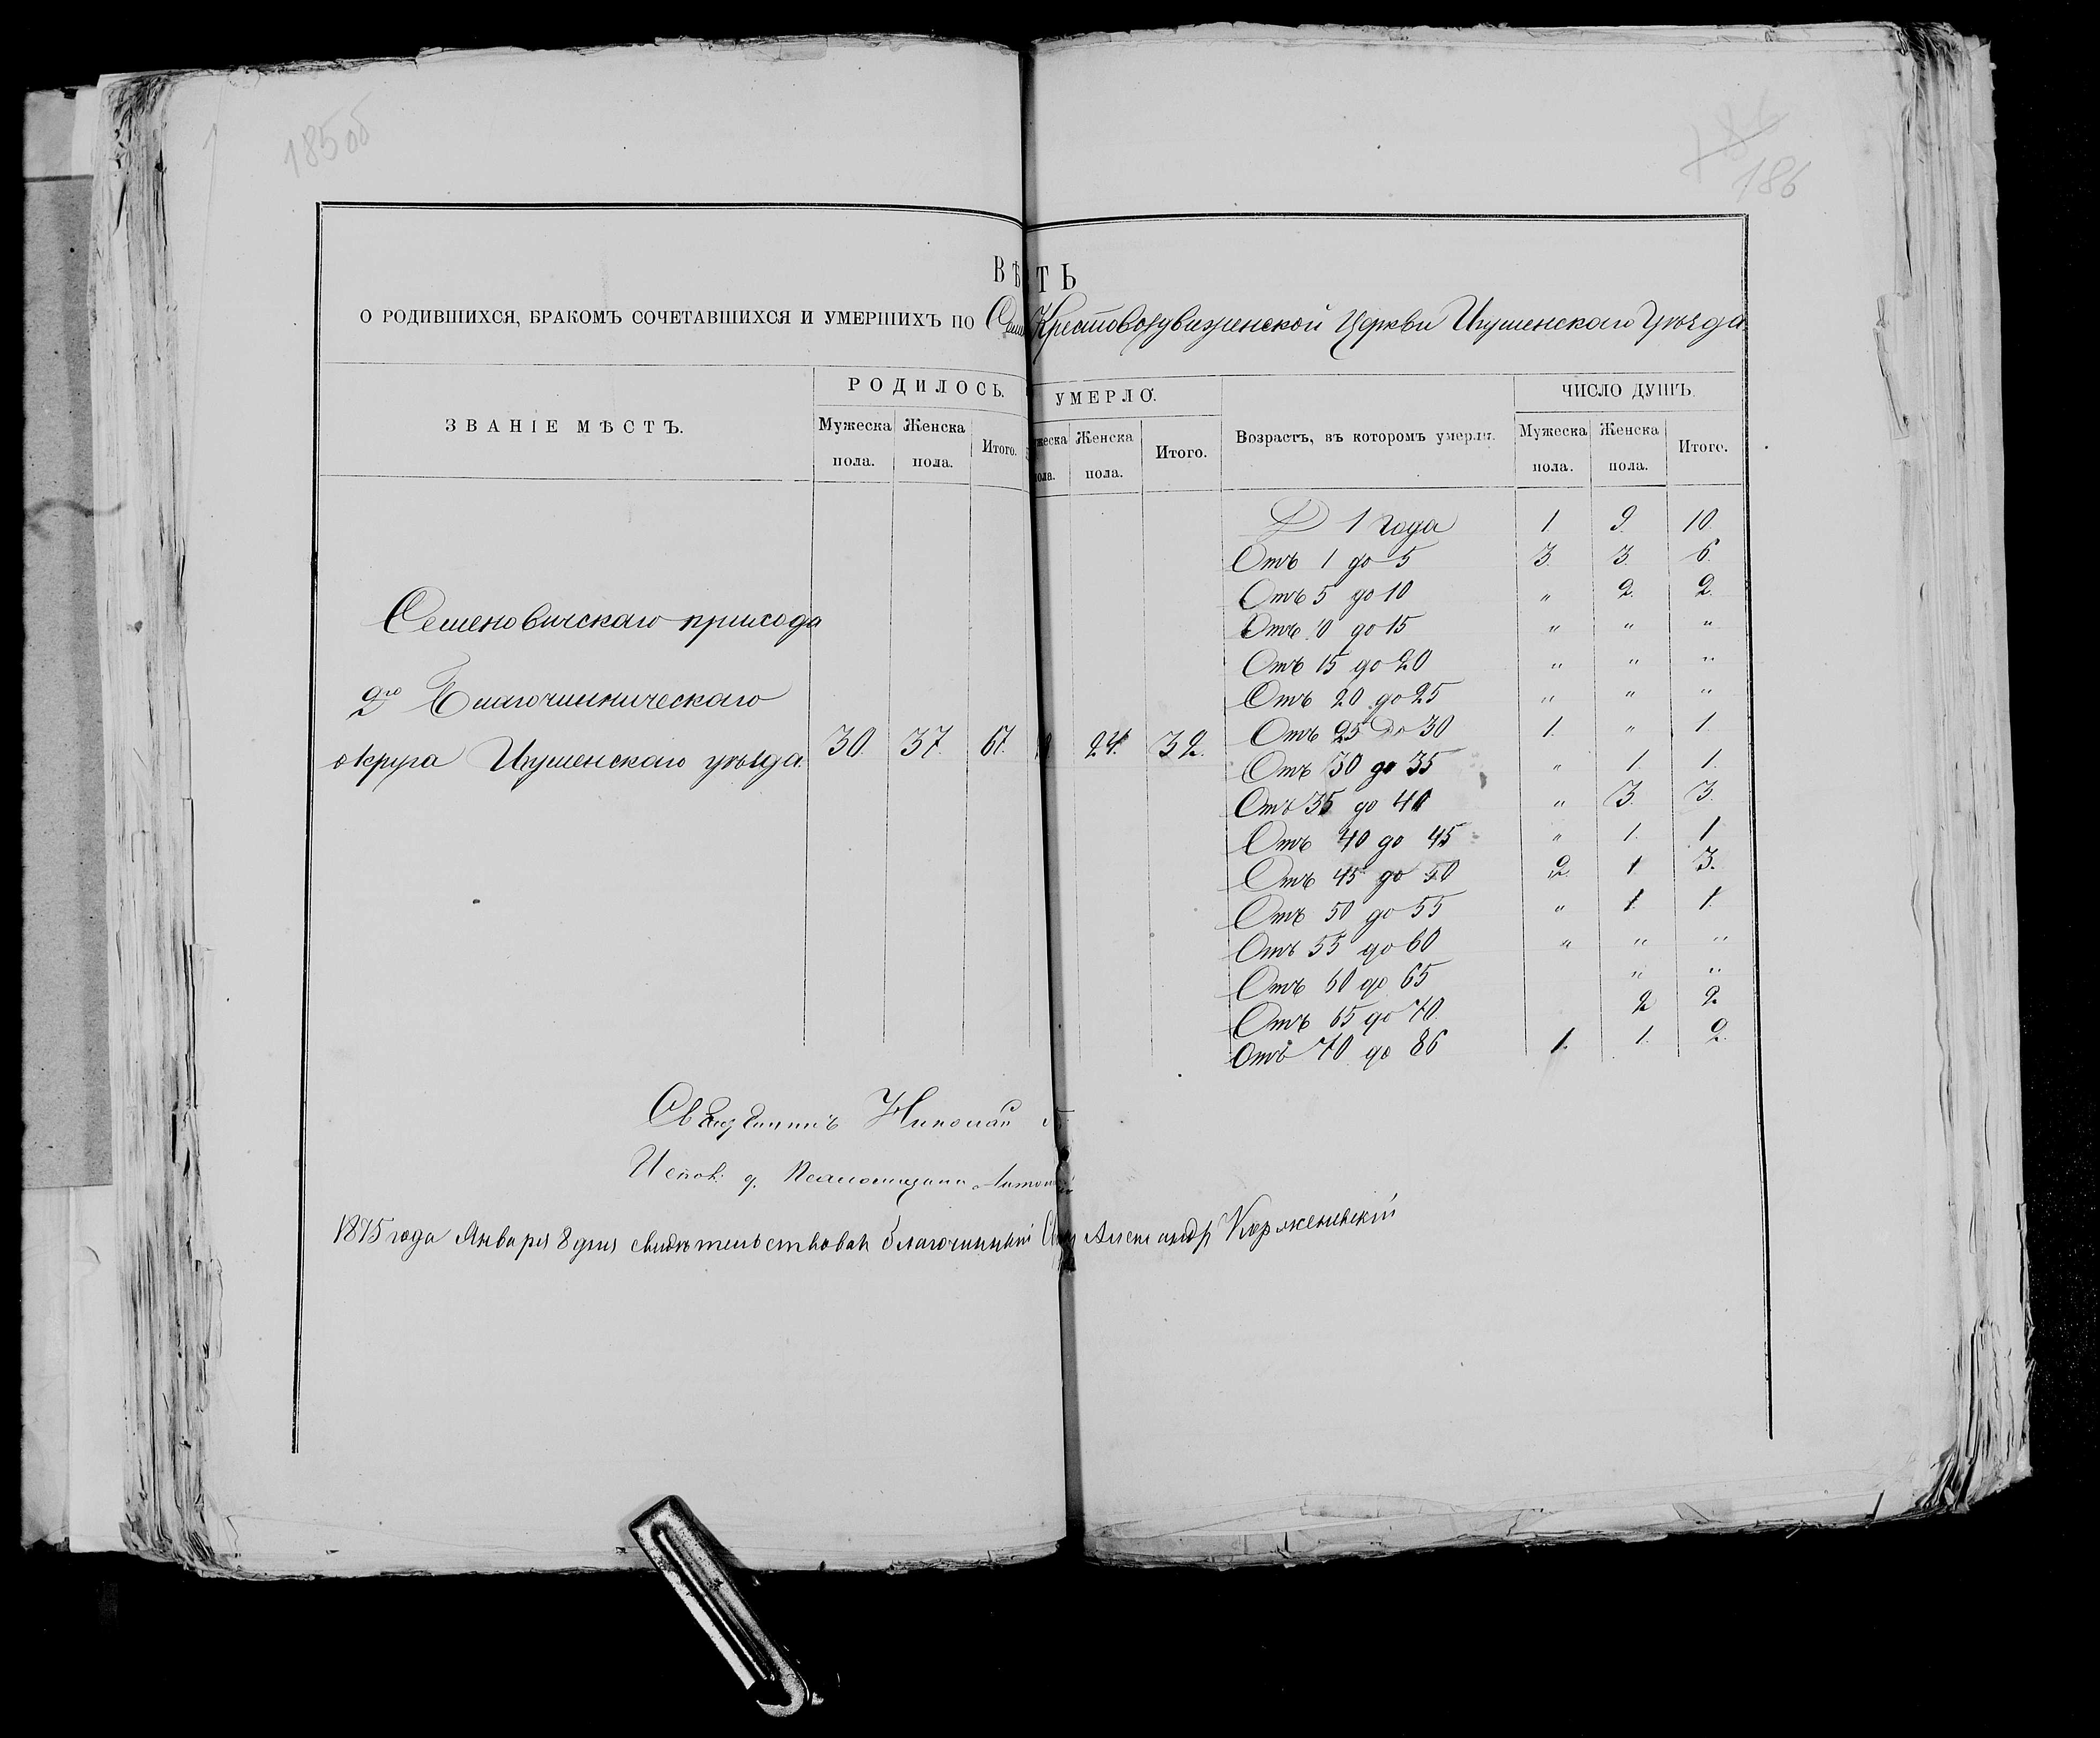 185об
186
186
ВѢ ТЬ
О РОДИВШИХСЯ, БРАКОМЪ СОЧЕТАВШИХСЯ И УМЕРШИХЪ ПО Крестовоздвиженской Церкви Игуменскаго Уѣзда
ЗВАНІЕ МѢСТЪ.
РОДИЛОСЬ.
Мужеска пола.
Женска пола.
Итого.
УМЕРЛО.
жеска пола.
Женска пола.
Итого.
Возрастъ, въ которомъ умерли.
ЧИСЛО ДУШЪ.
Мужеска пола.
Женска пола.
Итого.
Семеновичскаго прихода
2го Благочинническаго
округа Игуменскаго уѣзда. 30. 37. 67. 24. 32.
До 1 года 1. 9. 10.
Отъ 1 до 5 3. 3. 6.
Отъ 5 до 10 " 2. 2.
Отъ 10 до 15 " " "
Отъ 15 до 20 " " "
Отъ 20 до 25 " " "
Отъ 25 до 30 1. " 1.
Отъ 30 до 35 " 1. 1.
Отъ 35 до 40 " 3. 3.
Отъ 40 до 45 " 1. 1
Отъ 45 до 50 2. 1 3.
Отъ 50 до 55 " 1. 1.
Отъ 55 до 60 " " "
Отъ 60 до 65 " "
Отъ 65 до 70. 2 2
Отъ 70 до 86 1. 1. 2.
Священникъ Николай
Исправ. д. Псаломщика Антоній
1875 года Января 8 дня свидѣтельствовалъ благочинный Свящ Александръ Корженевскій